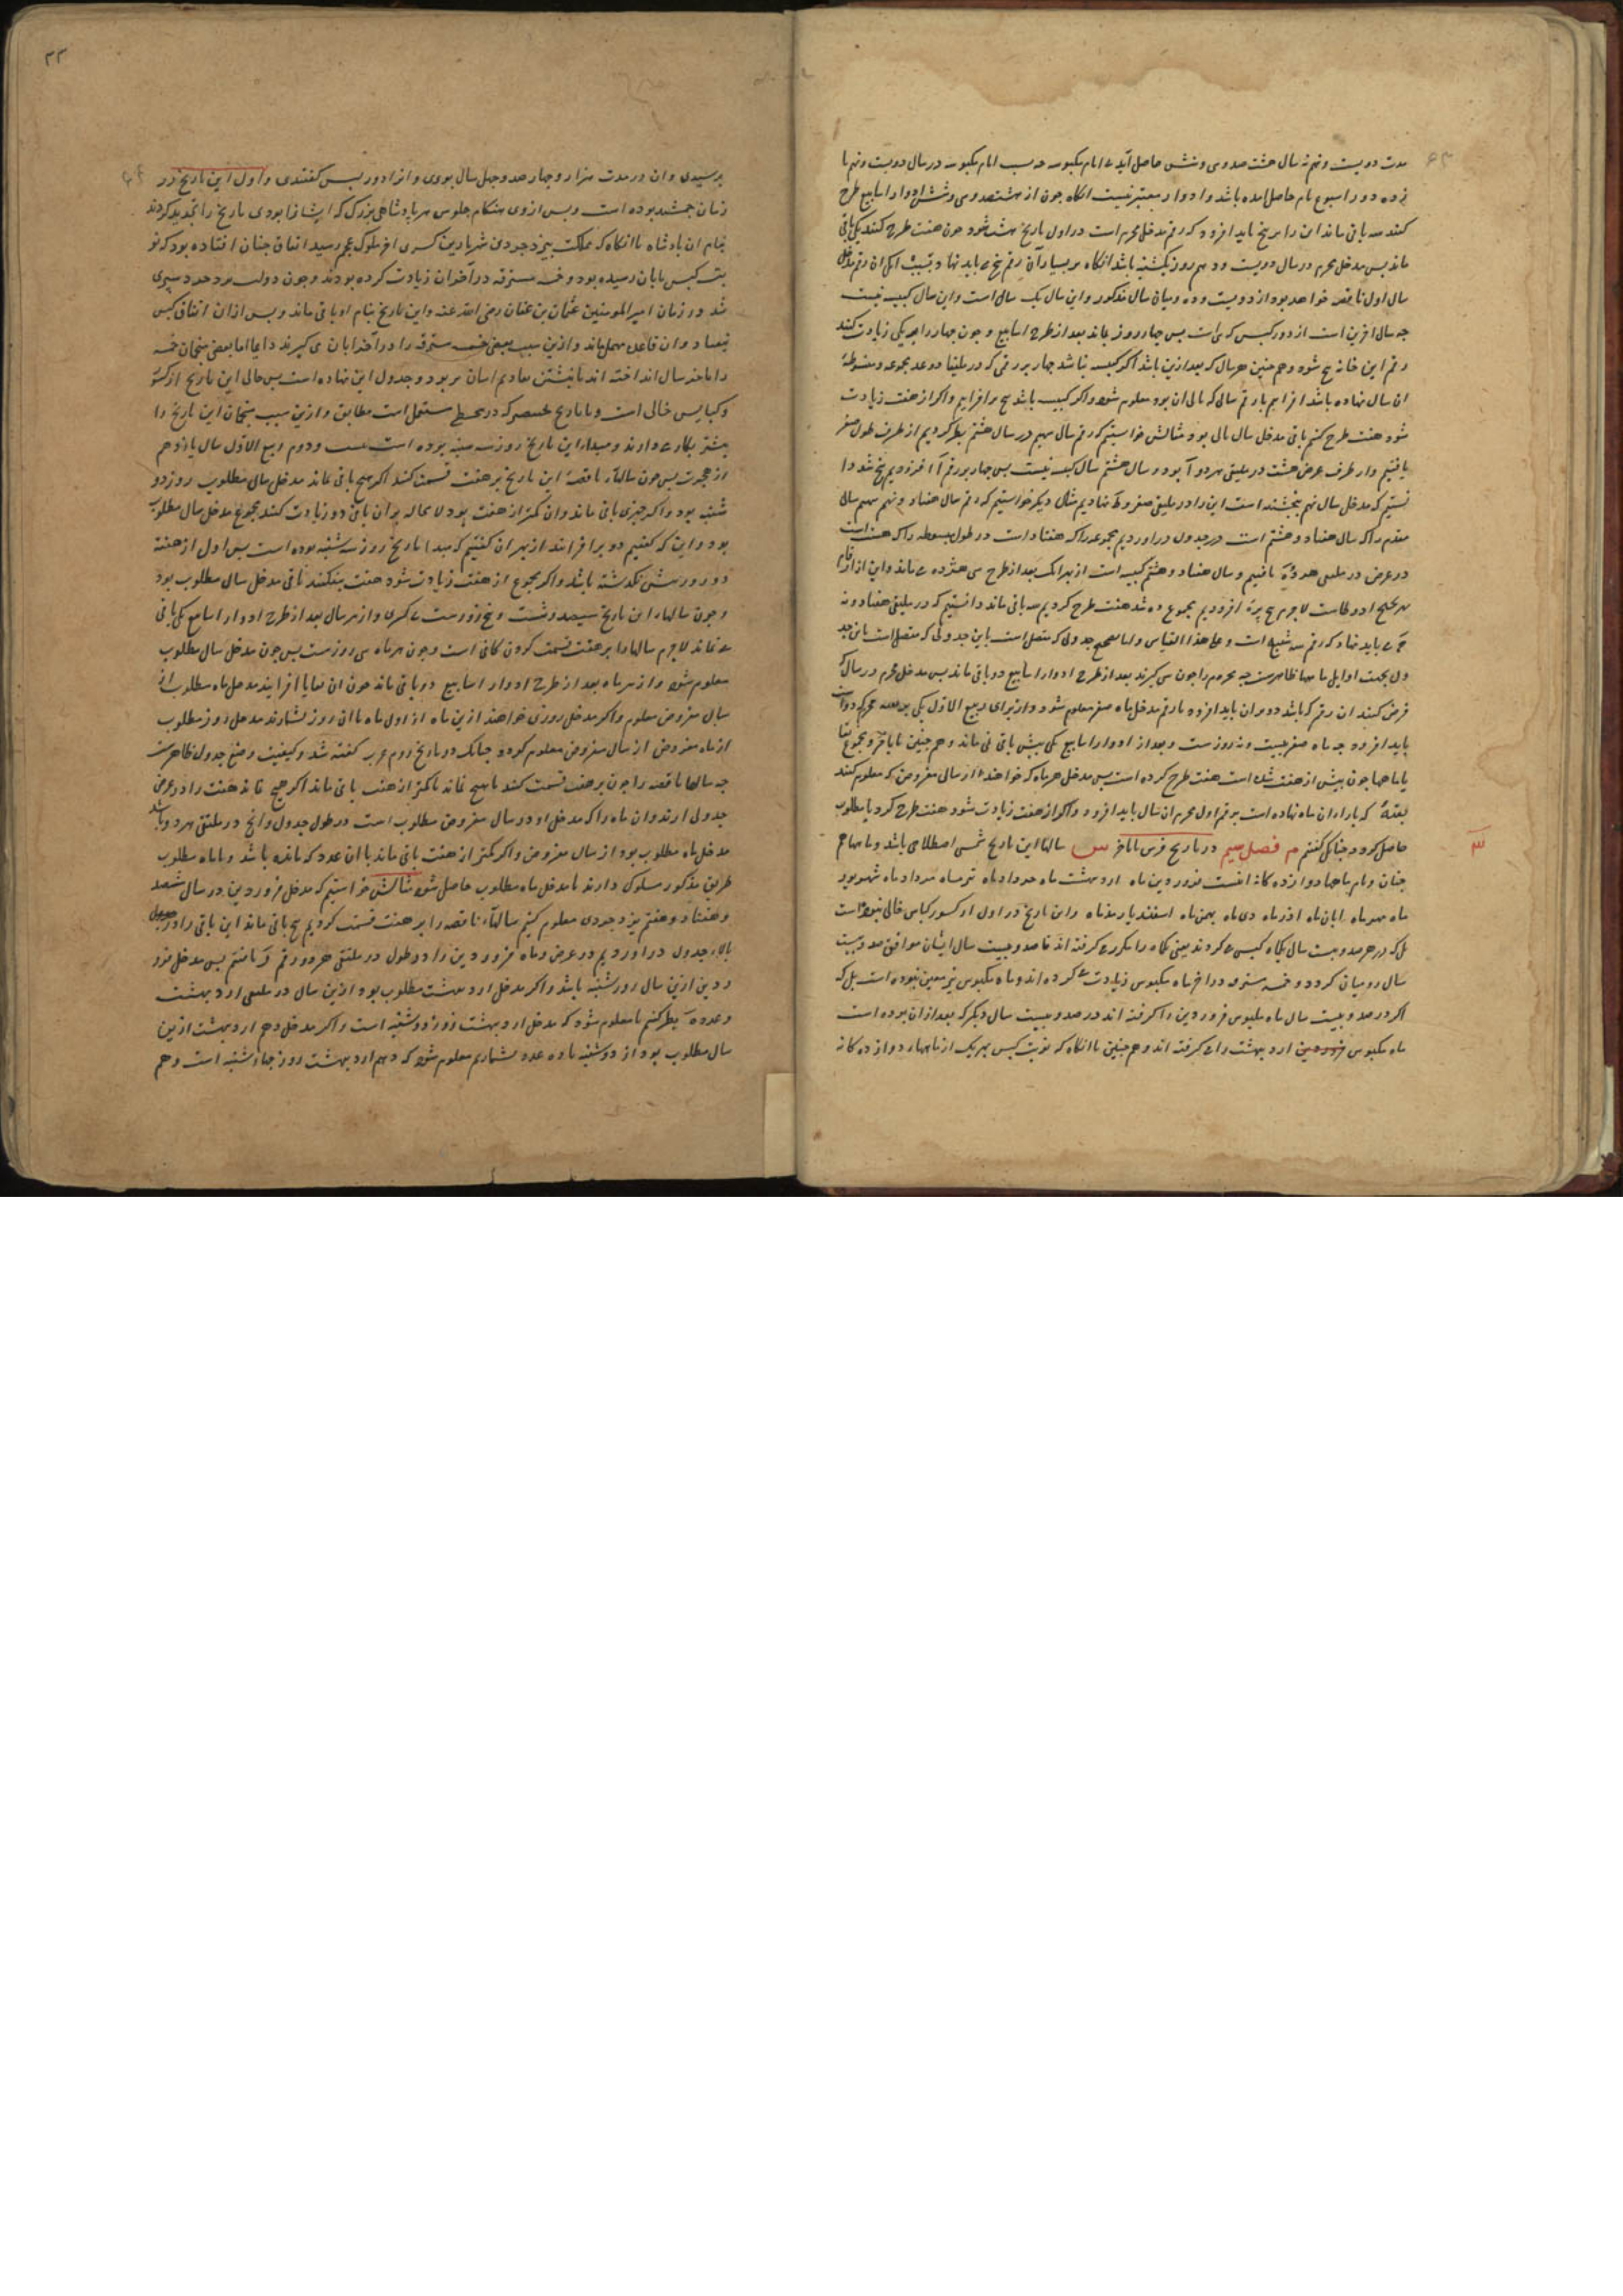 مدت دویست و نهم نه سال هشت صد و سی و شش حاصل آید
نوده دور اسبوع تام حاصل امده باشد و ادوار معتبر نیست انکاه چون از هشتصد و سی و شش ادوار اسابیع طرح
کنند سه باقی ماند این را بر پنج باید افزود که رقم مدخل محرم است در اول تاریخ هشت شود چون هفت طرح کنند یکی باقی
ماند پس مدخل محرم در سال دویست و دهم روز یکشنبه باشد
سال اول ناقصه خواهد بود از دویست و ده و میان سال مذکور و این سال یک سال است و این سال کبیسه نیست
چه سال اخرین است از دور کبس پس چهار روز بماند بعد از طرح اسابیع و چون چهار را بر یکی زیادت کنند
رقم این خانه پنج شود و هم چنین هر سال که بعد ازین باشد اکر کبیسه نباشد چهار بر رقمی که در ملتقاء دو عدد مجموعه و مبسوطهٔ
ان سال نهاده باشد افزاییم تا رقم سالی که تالی ان بود معلوم شود و اکر کبیسه باشد پنج بر افزاییم و اکر از هفت زیادت
شود هفت طرح کنیم باقی مدخل سال تالی بود مثالش خواستیم که رقم سال نهم در سال هشتم نظر کردیم از طرف طول صفر
یافتیم و از طرف عرض هشت در ملتقی هر دو آ بود و سال هشتم سال کبیسه نیست پس چهار بر رقم آ افزودیم پنج شد دا
نستیم که مدخل سال نهم پنجشنبه است این را در ملتقی صفر و ط نهادیم مثال دیکر خواستیم که رقم سال هفتاد و نهم نهیم سالی
مقدم را که سال هفتاد و هشتم است در جدول در اوردیم مجموعه را که هفتاد است در طول و مبسوطه را که هشت است
در عرض در ملتقی هر دو یافتیم و سال هفتاد و هشتم کبیسه است
افزودیم مجموع ده شد هفت طرح کردیم سه باقی ماند دانستیم که در ملتقی هفتاد و نه
باید نهاد که رقم سه شنبه است و علی هذا القیاس
فرض کنند ان رقم که باشد دو بران باید افزود تا رقم مدخل ماه صفر معلوم شود و از برای ربیع الاول یکی
باید افزود چه ماه صفر بیست و نه روزست و بعد از ادوار اسابیع یکی بیش باقی نمی ماند و هم چنین تا باقی
یا ماهها چون بیش از هفت شده است هفت طرح کرده است پس مدخل هر ماه که خواهند از سالی مفروض که معلوم کنند
که بازاء ان ماه نهاده است بر رقم اول محرم ان سال باید افزود و اکر از هفت زیادت شود هفت طرح کرد تا مطلوب
حاصل کردد چنانکه کفتیم م فصل سیم در تاریخ فرس سالهاء این تاریخ شمسی اصطلاحی باشد و ماهها هم
س
چنان و نام ماهها دوازده کانه اینست فروردین ماه اردبهشت ماه خرداد ماه تیر ماه مرداد ماه شهریور
ماه مهر ماه ابان ماه اذر ماه دی ماه بهمن ماه اسفندیارمذ ماه و این تاریخ در اول از کسور کبایس خالی نبوده است
بل که در هر صد و بیست سال یکماه کبس می کردند یعنی یکماه را مکرر می کرفته اند تا صد و بیست سال ایشان موافق صد و بیست
سال رومیان کردد و خمسه مسترقه در اخر ماه مکبوس زیادت می کرده اند و ماه مکبوس نیز معین نبوده است بل که
اکر در صد و بیست سال ماه مکبوس فروردین را کرفته اند در صد و بیست سال دیکر که بعد از ان بوده است
ماه مکبوس اردبهشت را می کرفته اند و هم چنین تا انکاه که نوبت کبس بهر یک از ماههاء دوازده کانه
۳۳
برسیدی و ان در مدت هزار و چهار صد و چهل سال بودی و انرا دور کبس کفتندی و اول این تاریخ در
زمان جمشید بوده است و پس از وی هنکام جلوس هر پادشاهی بزرک که ایشانرا بودی تاریخ را تجدید کردند
بنام ان پادشاه تا انکاه که مملکت بیزدجرد بن شهریار بن کسری اخر ملوک عجم رسید اتفاق چنان افتاده بود که نو
بت کبس بابان رسیده بود و خمسه مسترقه در آخر ابان زیادت کرده بودند و چون دولت یزدجرد سپری
شد در زمان امیر المومنین عثمان بن عفان رضی الله عنه و این تاریخ بنام او باقی ماند و پس از ان اتفاق کبس
نیفتاد و ان قاعده مهمل ماند و ازین سبب بعضی خمسه مسترقه را در آخر ابان می کیرند دایما اما بعضی منجمان خمسه
را باخر سال انداخته اند
و کبایس خالی است و با تاریخ بختنصر که در مجسطی مستعمل است مطابق و ازین سبب منجمان این تاریخ را
بیشتر بکار می دارند و مبداء این تاریخ روز سه شنبه بوده است بیست و دوم ربیع الاول سال یازدهم
از هجرت پس چون سالهاء ناقصهٔ این تاریخ بر هفت قسمت کنند اکر هیچ باقی نماند مدخل سال مطلوب روز دو
شنبه بود و اکر چیزی باقی ماند و ان کمتر از هفت بود لا محاله بر ان باقی دو زیادت کنند مجموع مدخل سال مطلوب
بود و این که کفتیم دو بر افزایند از بهر ان کفتیم که مبدا تاریخ روز سه شنبه بوده است پس اول از هفته
دو روز پیش نکذشته باشد و اکر مجموع از هفت زیادت شود هفت بیفکنند باقی مدخل سال مطلوب بود
و چون سالهاء این تاریخ سیصد و شصت و پنج روزست بی کسری و از هر سال بعد از طرح ادوار اسابیع یکی باقی
می ماند لا جرم سالها را بر هفت قسمت کردن کافی است و چون هر ماه سی روزست پس چون مدخل سال مطلوب
معلوم شود و از هر ماه بعد از طرح ادوار اسابیع دو باقی ماند چون ان بقایا افزایند مدخل ماه مطلوب از
سال مفروض معلوم و اکر مدخل روزی خواهند ازین ماه از اول ماه تا ان روز بشمارند مدخل روز مطلوب
از ماه مفروض از سال مفروض معلوم کردد چنانک در تاریخ روم و عرب کفته شد و کیفیت وضع جدول ظاهرست
چه سالهاء ناقصه را چون بر هفت قسمت کنند یا هیچ نماند یا کمتر از هفت باقی ماند اکر هیچ نماند هفت را در عرض
جدول ارند و ان ماه را که مدخل او در سال مفروض مطلوب است در طول جدول و انچ در ملتقی هر دو باشد
مدخل ماه مطلوب بود از سال مفروض و اکر کمتر از هفت باقی ماند با ان عدد که مانده باشد و با ماه مطلوب
طریق مذکور مسلوک دارند تا مدخل ماه مطلوب حاصل شود مثالش خواستیم که مدخل فروردین در سال ششصد
و هفتاد و هفتم یزدجردی معلوم کنیم سالهاء ناقصه را بر هفت قسمت کردیم پنج باقی ماند این باقی را در جدول
بالاء جدول در اوردیم در عرض و ماه فروردین را در طول در ملتقی هر دو رقم یافتیم پس مدخل فرو
ردین ازین سال روز شنبه باشد و اکر مدخل اردبهشت مطلوب بود ازین سال در ملتقی اردبهشت
و عدد نظر کنیم تا معلوم شود که مدخل اردبهشت روز دوشنبه است و اکر مدخل دهم اردبهشت ازین
سال مطلوب بود از دوشنبه تا ده عدد بشماریم معلوم شود که دهم اردبهشت روز چهارشنبه است و هم